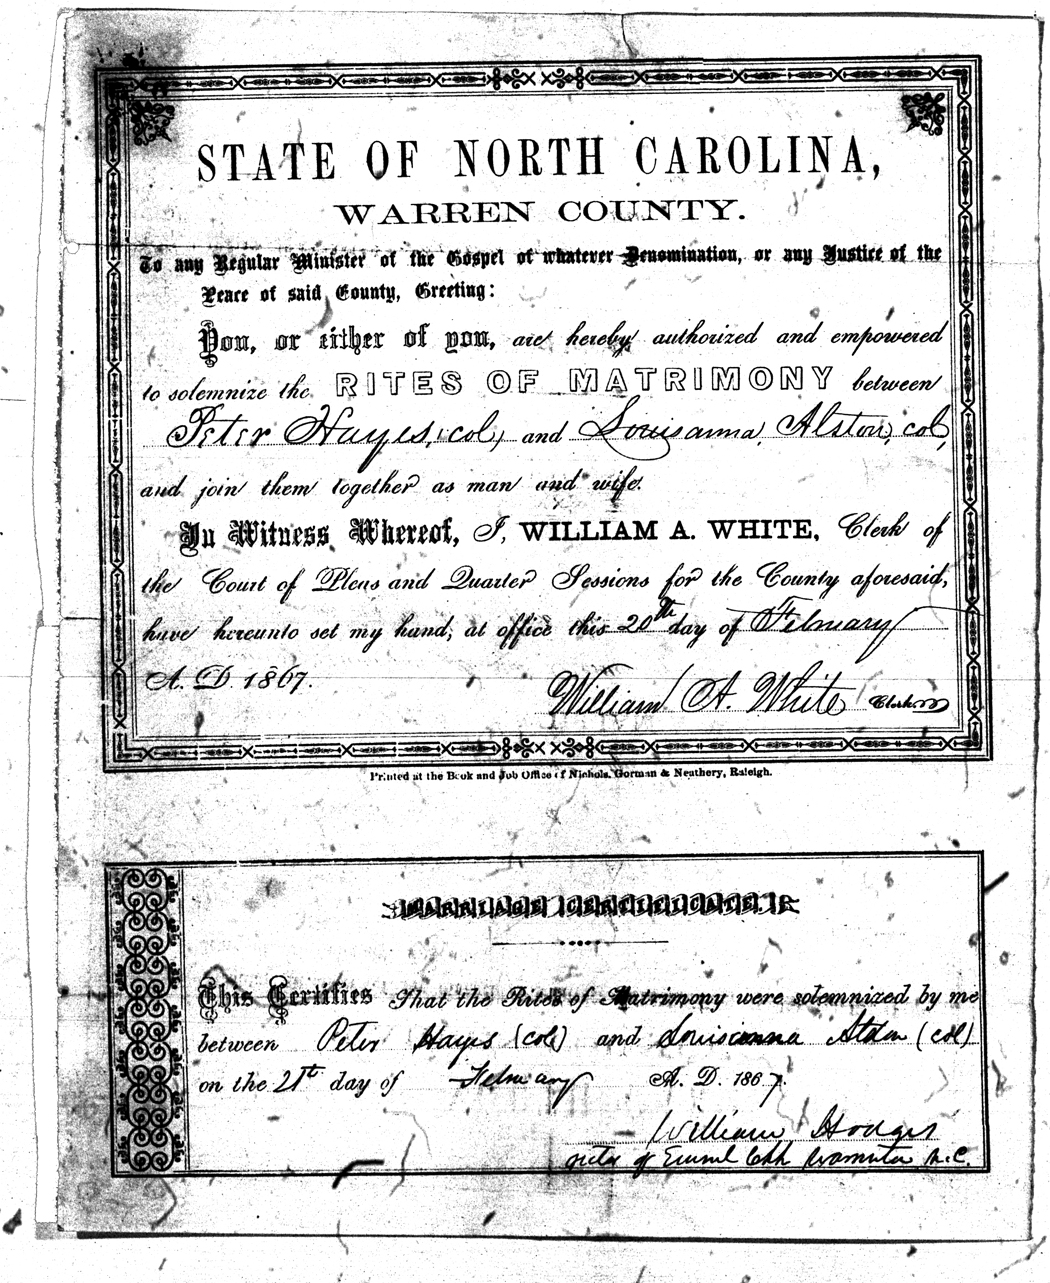 STATE OF NORTH CAROLINA,
WARREN COUNTY.
To any Regular Minister of the Gospel of whatever Denomination, or any Justice of the
Peace of said County, Greeting:
You, or either of you, are hereby authorized and empowered
to solemnize the RITES OF MATRIMONY between
Peter Hayes, col, and Louisanna, Alston, col,
and join them together as man and wife.
In Witness Whereof, I, WILLIAM A. WHITE, Clerk of
the Court of Pleas and Quarter Sessions for the County aforesaid,
have hereunto set my hand, at office this 20th day of February
A. D. 1867.
William A. White Clerk
Printed at the Book and Job Office of Nichols, Gorman & Neathery, Raleigh.
MARRIAGE CERTIFICATE.
This Certifies That the Rites of Matrimony were solemnized by me
between Peter Hayes (col) and Louisianna Alston (col)
on the 21st day of February A. D. 1867.
William Hodges
of N.C.